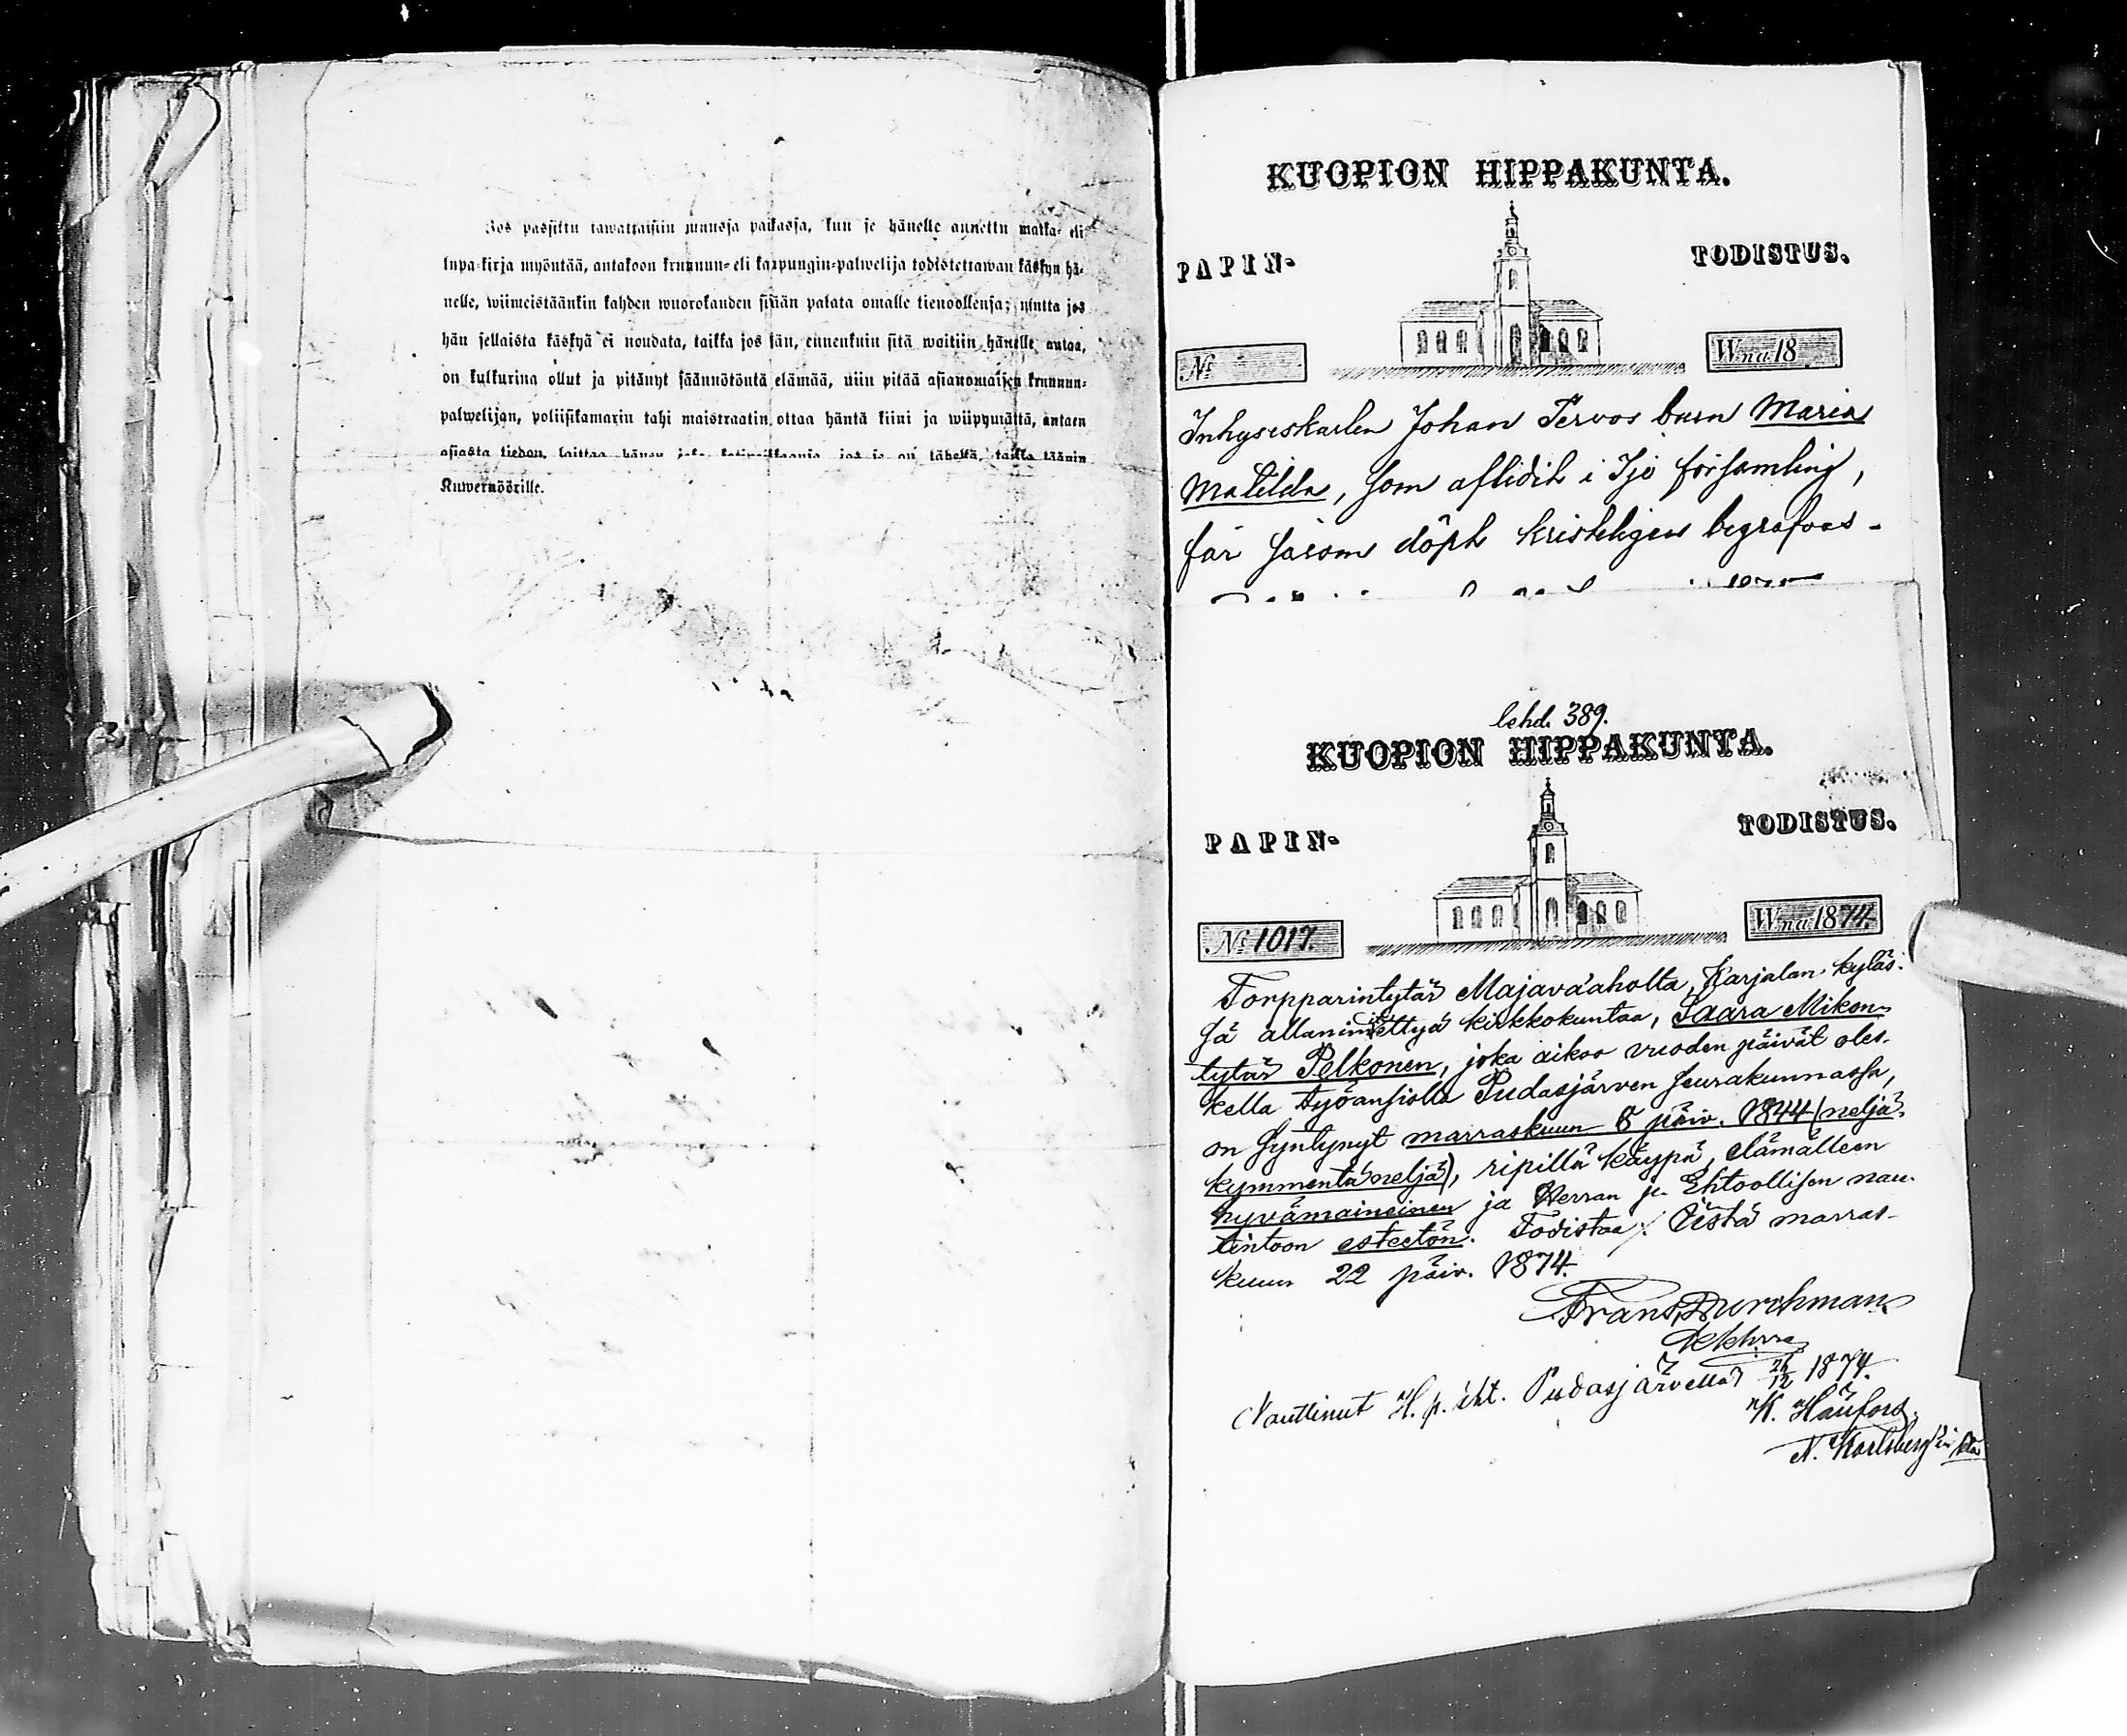 Jos passittu tawattaisiin muussa paikassa, kun se hänelle annettu matka- eli
lupa-kirja myöntää, antakoon kruunun- eli kaupungin-palwelija todistettawan käskyn hä-
nelle, wiimeistäänkin kahden wuorokauden sisään palata omalle tienoollensa; mutta jos
hän sellaista käskyä ei noudata, taikka jos hän, ennenkuin sitä waitiin hänelle antaa,
on kulkurina ollut ja pitänyt säännötöntä elämää, niin pitää asianomaisen kruunun-
palwelijan, poliisikamarin tahi maistraatin ottaa häntä kiini ja wiipymättä, antaen
asiasta tiedon, laittaa hänen joko kotipaikkaansa, jos se on lähellä, taikka läänin
Kuwernöörille.
KUOPION HIPPAKUNTA.
PAPIN- TODISTUS.
No Wna 18
Inhyseskarlen Johan Tervos barn Maria
Matilda, som aflidit i Ijo församling,
får såsom döpt kristeligen begrafvas.
lehd. 389.
KUOPION HIPPAKUNTA.
PAPIN- TODISTUS.
No 1017. Wna 1874.
Torpparintytär Majavaaholta, Karjalan kyläs-
sä allanimitettyä kirkkokuntaa, Saara Mikon-
tytär Pelkonen, joka aikoo vuoden päivät oles-
kella työansiolla Pudasjärven seurakunnassa,
on syntynyt marraskuun 8 päiv. 1844 (neljä-
kymmentäneljä), ripillä käypä, elämälleen
hyvämaineinen ja Herran p. Ehtoollisen nau-
tintoon esteetön. Todistaa; Iistä marras-
kuun 22 päiv. 1874.
Frans Durchman
Nauttinut H. p. eht. Pudasjärvellä 26/12 1874.
K. Hänfors.
N. Karlsberg